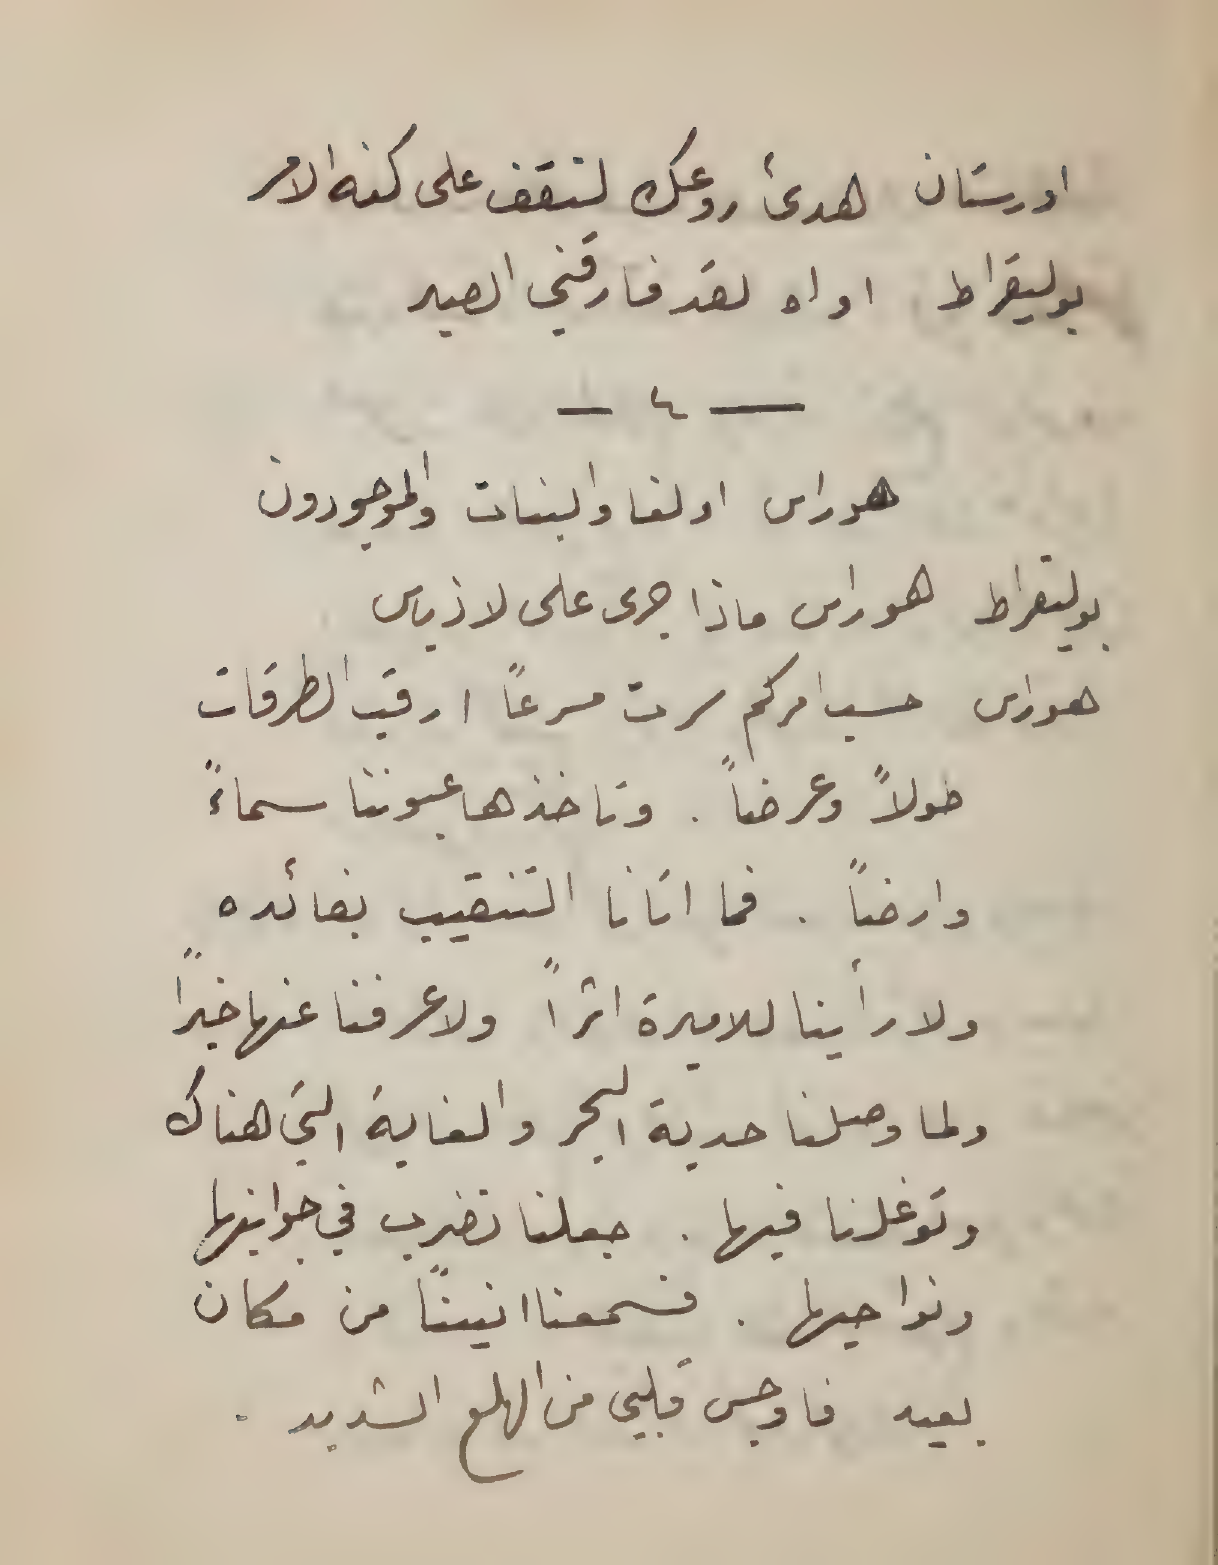 اورستان هدئ روعك لنقف على كنه الامر
بوليقراط اواه لقد فارقني الصبر
— ٤ —
هوراس اولغا والبنات والموجودون
بوليقراط هوراس ماذا جرى على لاذياس
هوراس حسب امركم سرت مسرعاً ارقب الطرقات
طولاً وعرضاً . وتاخذها عيوننا سماءً
وارضاً . فما اتانا التنقيب بفائده
ولا رأينا للاميرة اثراً ولا عرفنا عنها خبراً
ولما وصلنا حدبة البحر والغابة التي هناك
وتوغلنا فيها . جعلنا نضرب في جوانبها
ونواحيها . فسمعنا انيناً من مكان
بعيد فاوجس قلبي من الهلع الشديد .